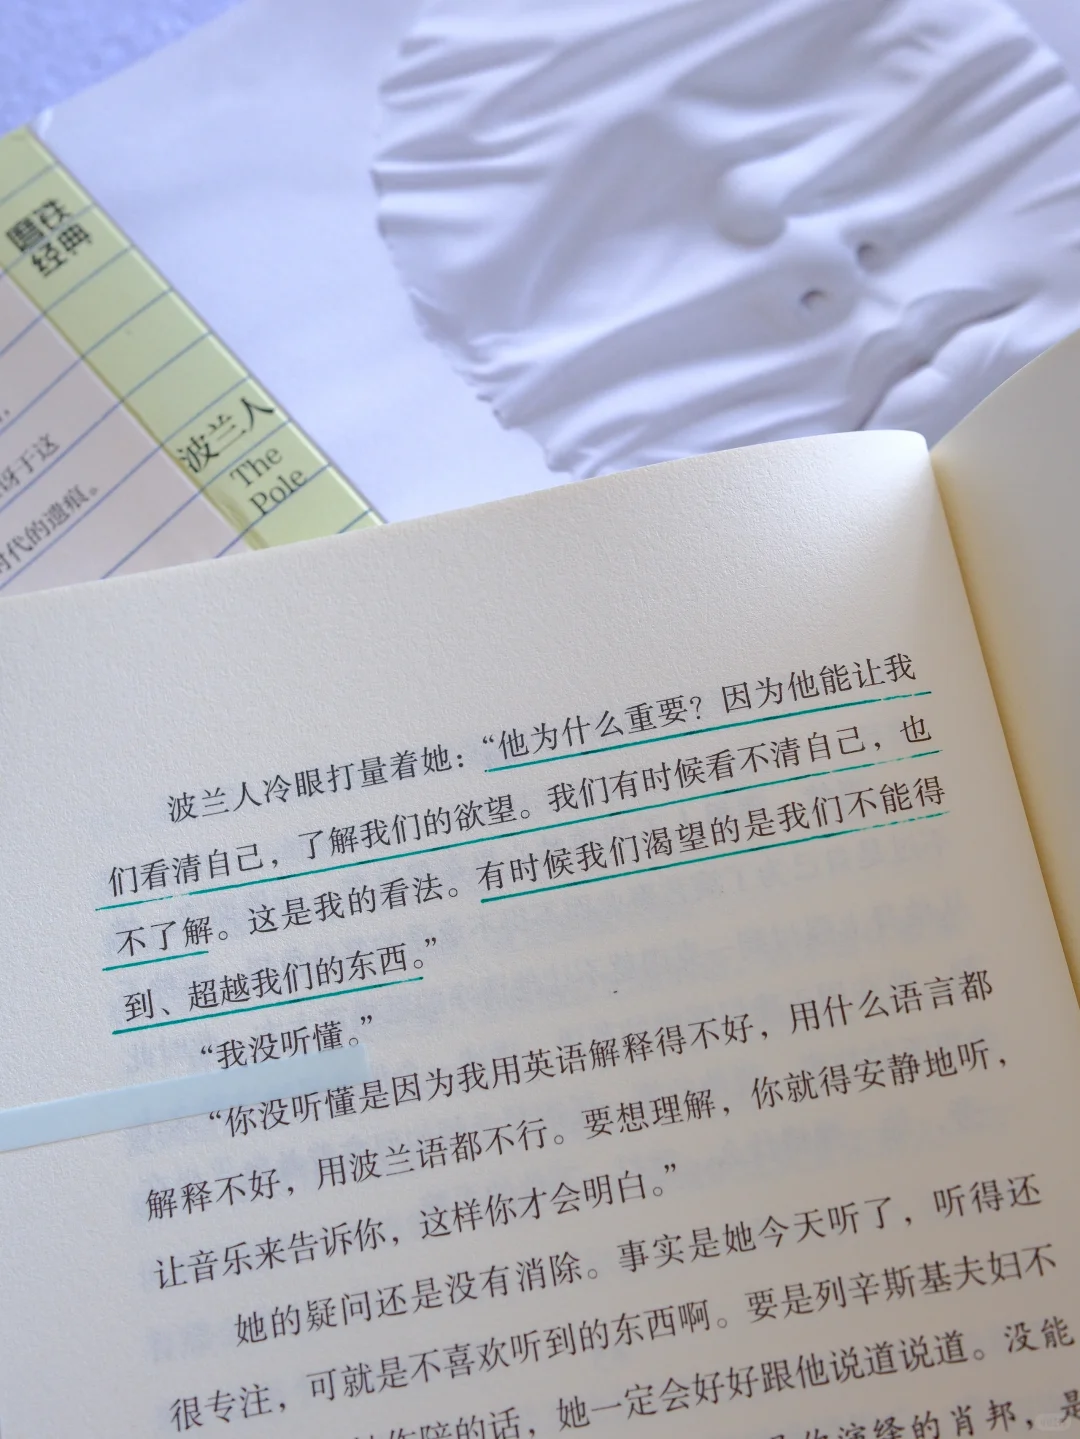 磨铁
经典
波兰人
The
Pole
讶于这
时代的遗痕。
波兰人冷眼打量着她：“他为什么重要？因为他能让我
们看清自己，了解我们的欲望。我们有时候看不清自己，也
不了解。这是我的看法。有时候我们渴望的是我们不能得
到、超越我们的东西。”
“我没听懂。”
“你没听懂是因为我用英语解释得不好，用什么语言都
解释不好，用波兰语都不行。要想理解，你就得安静地听，
让音乐来告诉你，这样你才会明白。”
她的疑问还是没有消除。事实是她今天听了，听得还
很专注，可就是不喜欢听到的东西啊。要是列辛斯基夫妇不
作陪的话，她一定会好好跟他说道说道。没能
你演绎的肖邦，是